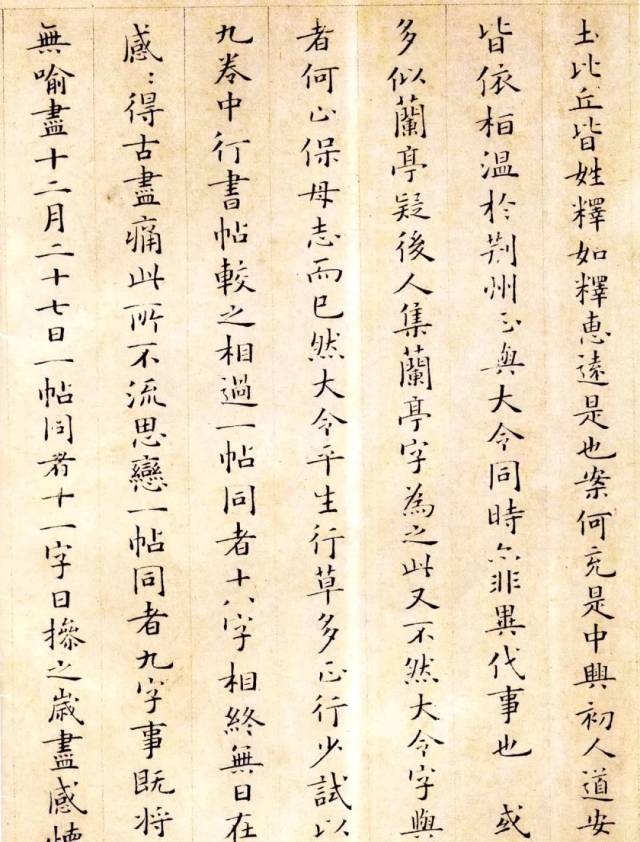 土比丘皆姓釋如釋惠遠是也案何充是中興初人道安
皆依桓温於荆州正與大令同時亦非異代事也或
多似蘭亭疑後人集蘭亭字為之此又不然大令字與
者何止保母志而已然大令平生行草多正行少試以
九卷中行書帖較之相過一帖同者十八字相終無日在
感〻得古盡痛此所不流思戀一帖同者九字事既將
無喻盡十二月二十七日一帖同者十一字日操之歲盡感懷